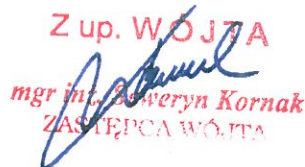 Z up. WÓJTA
mgr inż. Seweryn Kornak
ZASTĘPCA WÓJTA